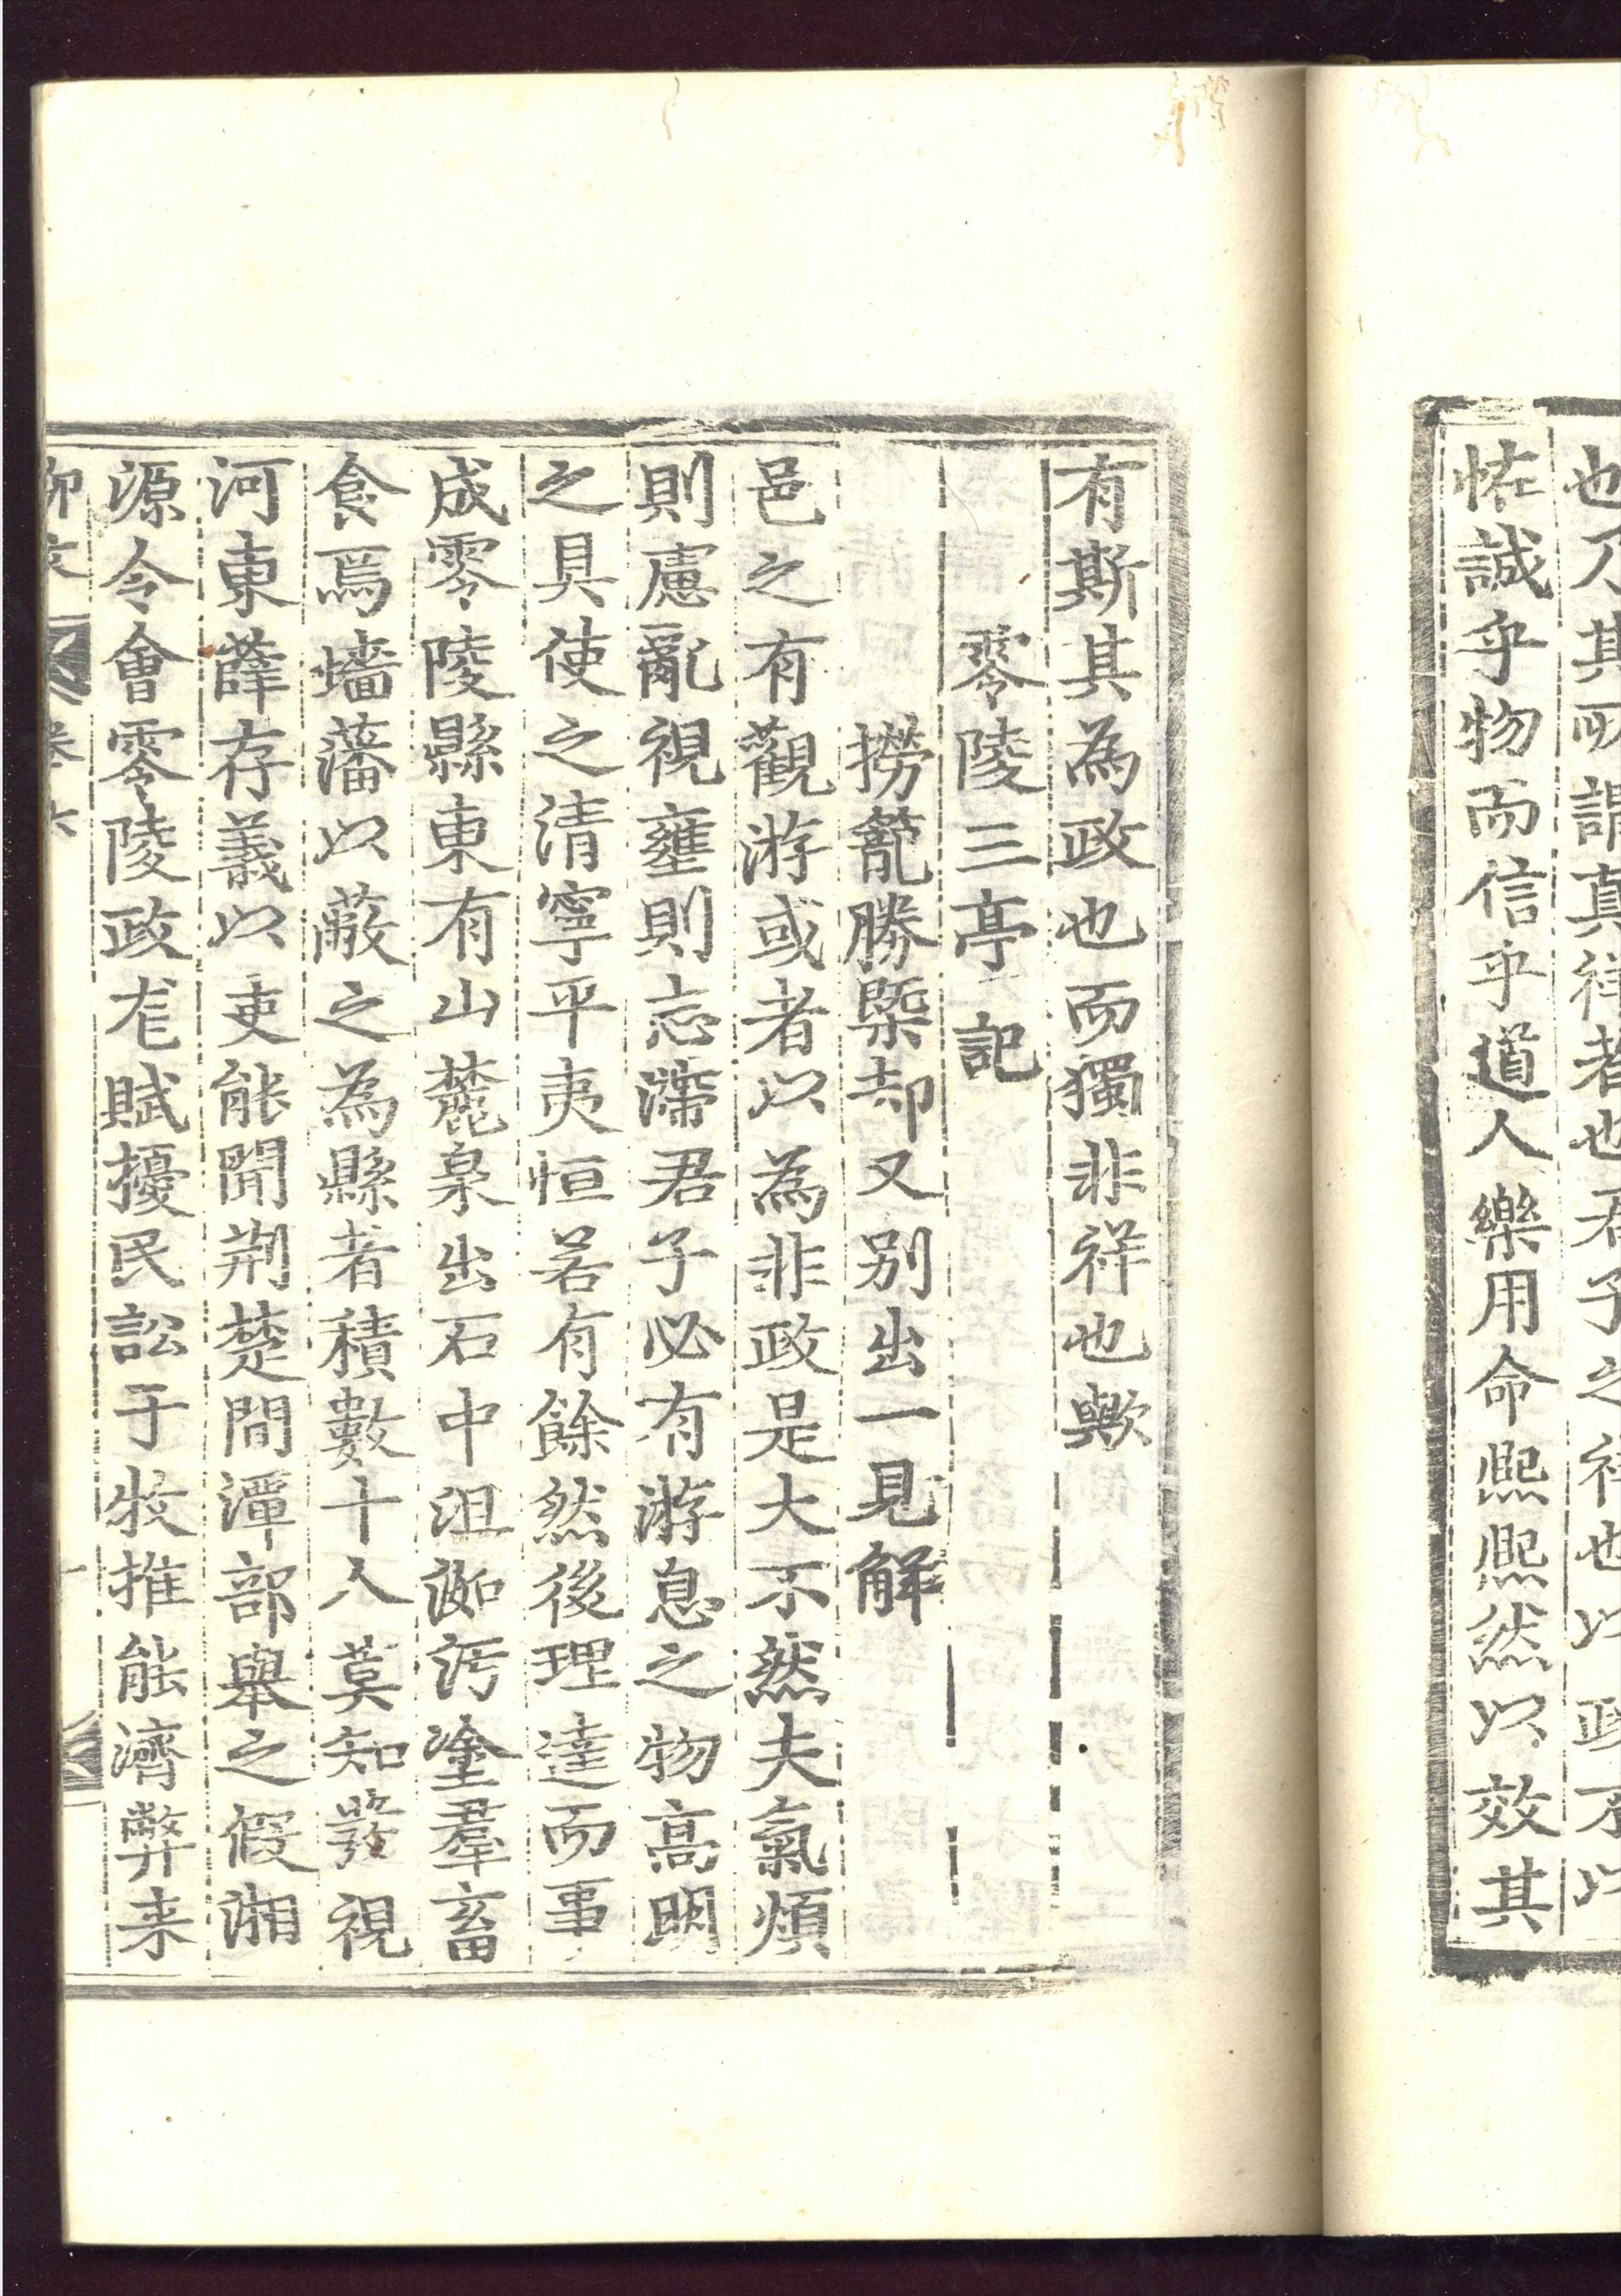 也乃其所謂真祥者也君子之祥也以政不以
恠誠乎物而信乎道人樂用命熙熙然以效其
有斯其為政也而獨非祥也歟
零陵三亭記
撈籠勝槩却又別出一見解
邑之有觀游或者以為非政是大不然夫氣煩
則慮亂視壅則志滯君子必有游息之物高明
之具使之清寧平夷恒若有餘然後理達而事
成零陵縣東有山麓泉出石中沮洳汚塗羣畜
食焉墻藩以蔽之為縣者積數十人莫知發視
河東薛存義以吏能聞荆楚間潭部舉之假湘
源令會零陵政厖賦擾民訟于牧推能濟弊来
柳文 卷六